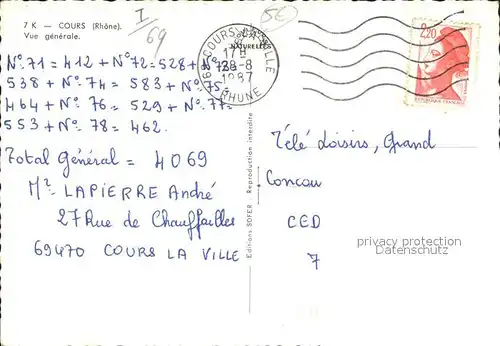 7 K — COURS (Rhône).
Vue générale.
I
69
5€
COURS-LA-VILLE
NATURELLES
17 H
28-8
1987
RHONE
2,20
REPUBLIQUE FRANÇAISE
N°. 71 = 412 + N° 72 = 528 + N° 73 =
538 + N° 74 = 583 + N° 75 =
464 + N° 76 = 529 + N° 77 =
553 + N° 78 = 462.
Total Général = 4069
Mr LAPIERRE André
27 Rue de Chauffailles
69470 COURS LA VILLE
Editions SOFER - Reproduction interdite
Télé Loisirs, Grand
Concou
CED
7
privacy protection
Datenschutz